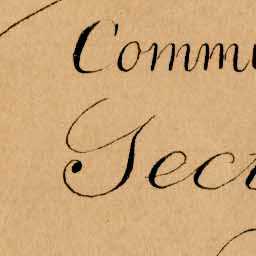 Commu
Sect